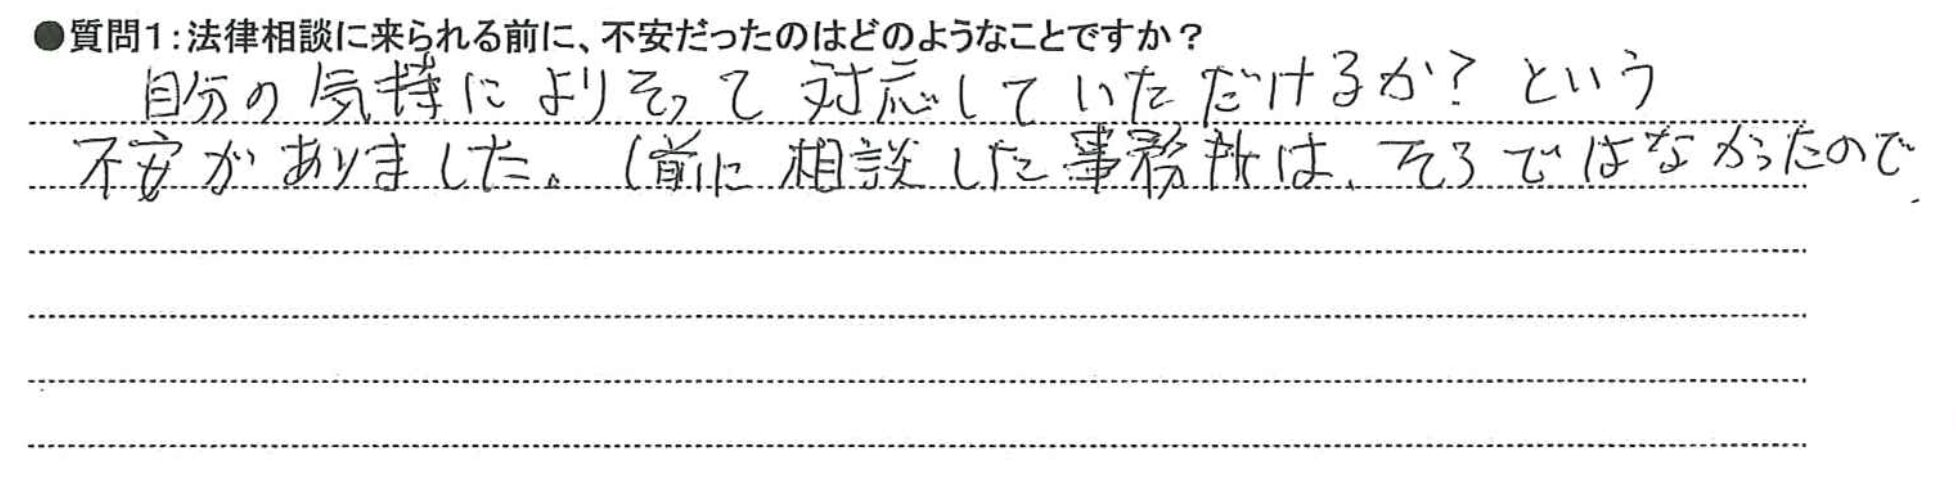 ●質問1:法律相談に来られる前に、不安だったのはどのようなことですか?
自分の気持によりそって対応していただけるか?という
不安がありました。(前に相談した事務所は、そうではなかったので